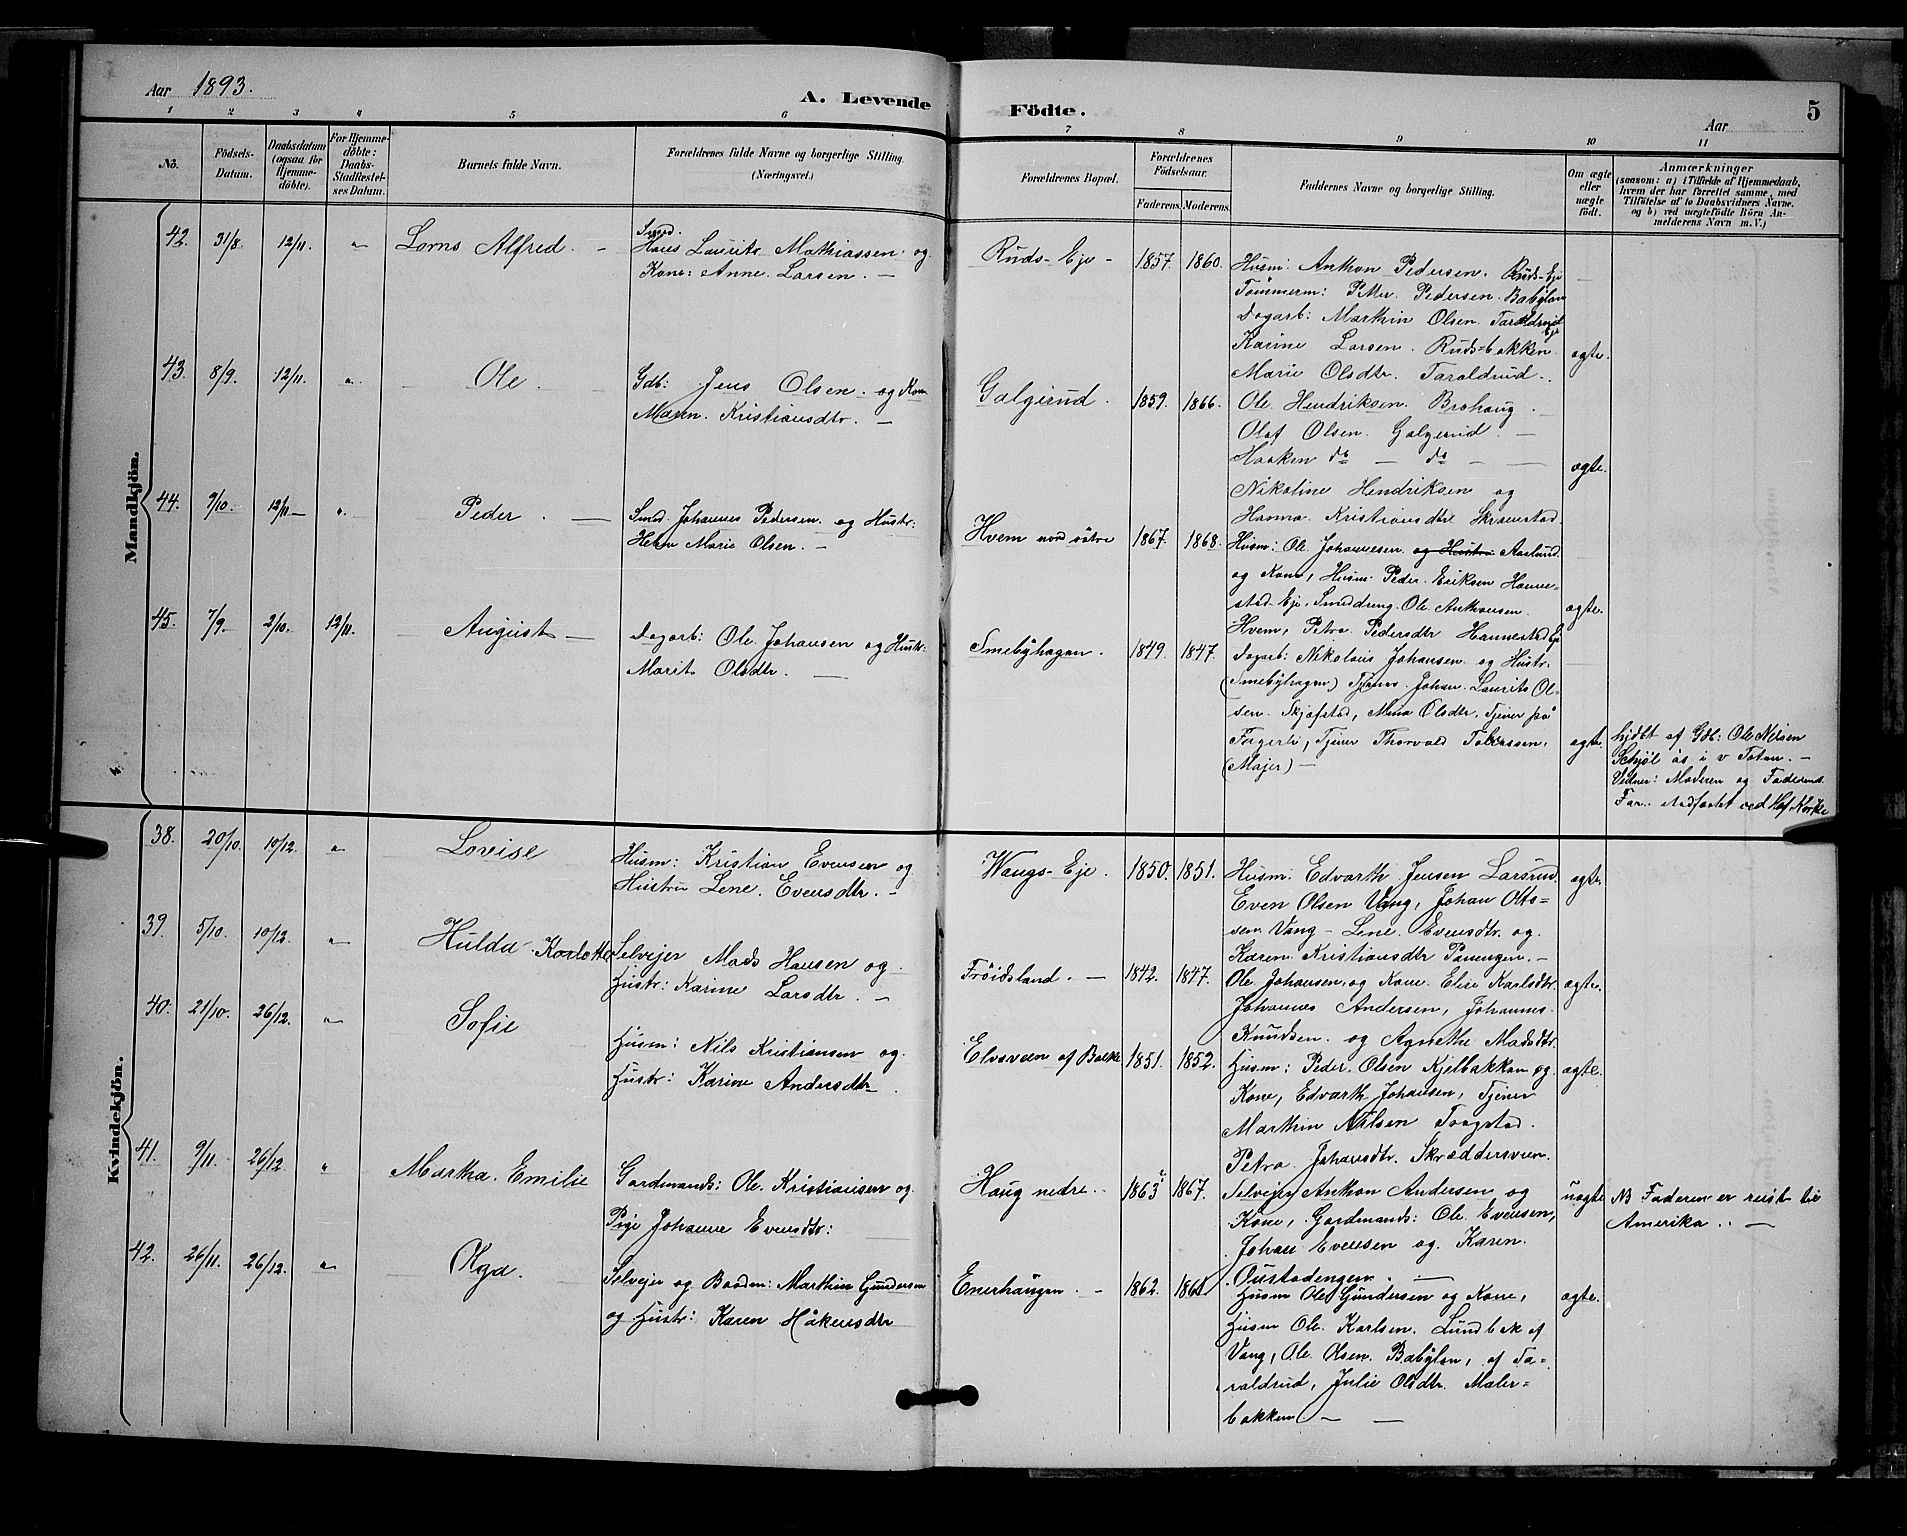 Aar 1893.
A. Levende Födte.
Aar
5
1 2 3 4 5 6 7 8 9 10 11
No.
Födsels-
Datum.
Daabsdatum
(ogsaa for
Hjemme-
döbte).
For Hjemme-
döbte:
Daabs-
Stadfæstel-
ses Datum.
Barnets fulde Navn.
Forældrenes fulde Navne og borgerlige Stilling.
(Næringsvei.)
Forældrenes Bopæl.
Forældrenes
Födselsaar.
Faderens. Moderens.
Faddernes Navne og borgerlige Stilling.
Om ægte
eller
uægte
födt.
Anmærkninger
(saasom: a) i Tilfælde af Hjemmedaab,
hvem der har forrettet samme, med
Tilföielse af to Daabsvidners Navne.
og b) ved uægtefödte Börn An-
melderens Navn m. V.)
Mandkjön.
42. 31/8 12/11. " Lorns Alfred. –
Smed.
Hans Laurits Mathiassen og
Kone: Anne Larsen. –
Ruds-Eje – 1857. 1860.
Husm: Anthon Pedersen. Ruds-Eje
Tömmerm: Petter Pedersen. Babylon
Dagarb: Marthin Olsen. Taraldrud
Eje
Karine Larsen. Ruds-bakken.
Marie Olsdtr. Taraldrud.
ægte.
43. 8/9. 12/11. " Ole.
Gdb: Jens Olsen. og Kone
Maren. Kristiansdtr. –
Galgerud. 1859. 1866.
Ole. Hendriksen. Brohaug.
Olaf Olsen. Galgerud. –
Haaken do – do –
Nikoline Hendriksen og
Hanna. Kristiansdtr Skramstad.
ægte.
44. 9/10. 12/11– " Peder. –
Smed. Johannes Pedersen. og Hustr:
Helene Marie Olsen. –
Hvem nordöstre 1867. 1868.
Husm: Ole Johannesen og Hustru Aaslund.
og Kone, Husm. Peder Eriksen Hanne-
stad-Eje, Smeddreng. Ole. Anthonsen.
Hvem, Petra. Pedersdtr Hannestad Eje
ægte.
45. 7/9. 2/10. 12/11. August –
Dagarb: Ole Johansen og Hustr:
Marit Olsdtr. –
Smebyhagen. 1849. 1847.
Dagarb: Nikolais Johansen og Hustr.
(Smebyhagen) Tjener Johan Laurits Ol-
sen. Skjefstad, Mina Olsdtr. Tjener på
Fagerli, Tjener Thorvald Tollefssen.
(Majer) –
ægte.
hjdbt af Gdb: Ole Nilsen
Skjöl ås i v Toten. –
Vidner: Moderen og Faderens
Far.
Kvindekjön.
38. 20/10. 10/12. " Lovise
Husm: Kristian Evensen og
Hustru Lene. Evensdtr. –
Wangs-Eje. 1850. 1851.
Husm: Edvarth Jensen Larsrud.
Even Olsen Vang, Johan Otto-
sen Vang – Lene. Evensdtr. og.
Karen. Kristiansdtr Panengen. –
ægte.
39. 5/10. 10/12. " Hulda Karlotte
Selvejer Mads Hansen og
Hustr: Karine Larsdtr. –
Fröidsland. – 1842. 1847.
Ole Johansen, og Kone. Elise Karlsdtr.
Johannes Andersen, Johannes.
Knudsen. og Agnethe Madsdtr.
ægte.
40. 21/10. 26/12. " Sofie
Husm: Nils Kristiansen og
Hustr: Karine Andersdtr.
Elvsveen af Balke 1851. 1852.
Husm: Peder Olsen Kjelbakken og.
Kone, Edvarth Johansen, Tjener
Marthin Nilsen Trogstad.
Petra. Johansdtr. Skræddersveen.
ægte.
41. 9/11. 26/12 " Martha. Emilie
Gardmands: Ole. Kristiansen og
Pige Johanne Evensdtr:
Haug nedre. 1863 1867.
Selvejer Anthon Andersen og
Kone, Gardmands: Ole. Evensen,
Johan Evensen og Karen.
Oustadengen. –
uægte
NB Faderen er reist til
Amerika. –
42. 26/11. 26/12. " Olga.
Selvejer og Baadm: Marthin Gundersen
og Hustr: Karen Håkensdtr
Enerhaugen. – 1862. 1861
Husm Ole Gundersen og Kone,
Husm Ole. Karlsen. Lundbæk af
Vang, Ole. Olsen. Babylon, af Ta-
raldrud, Julie Olsdtr. Maler-
bakken. – –
ægte.